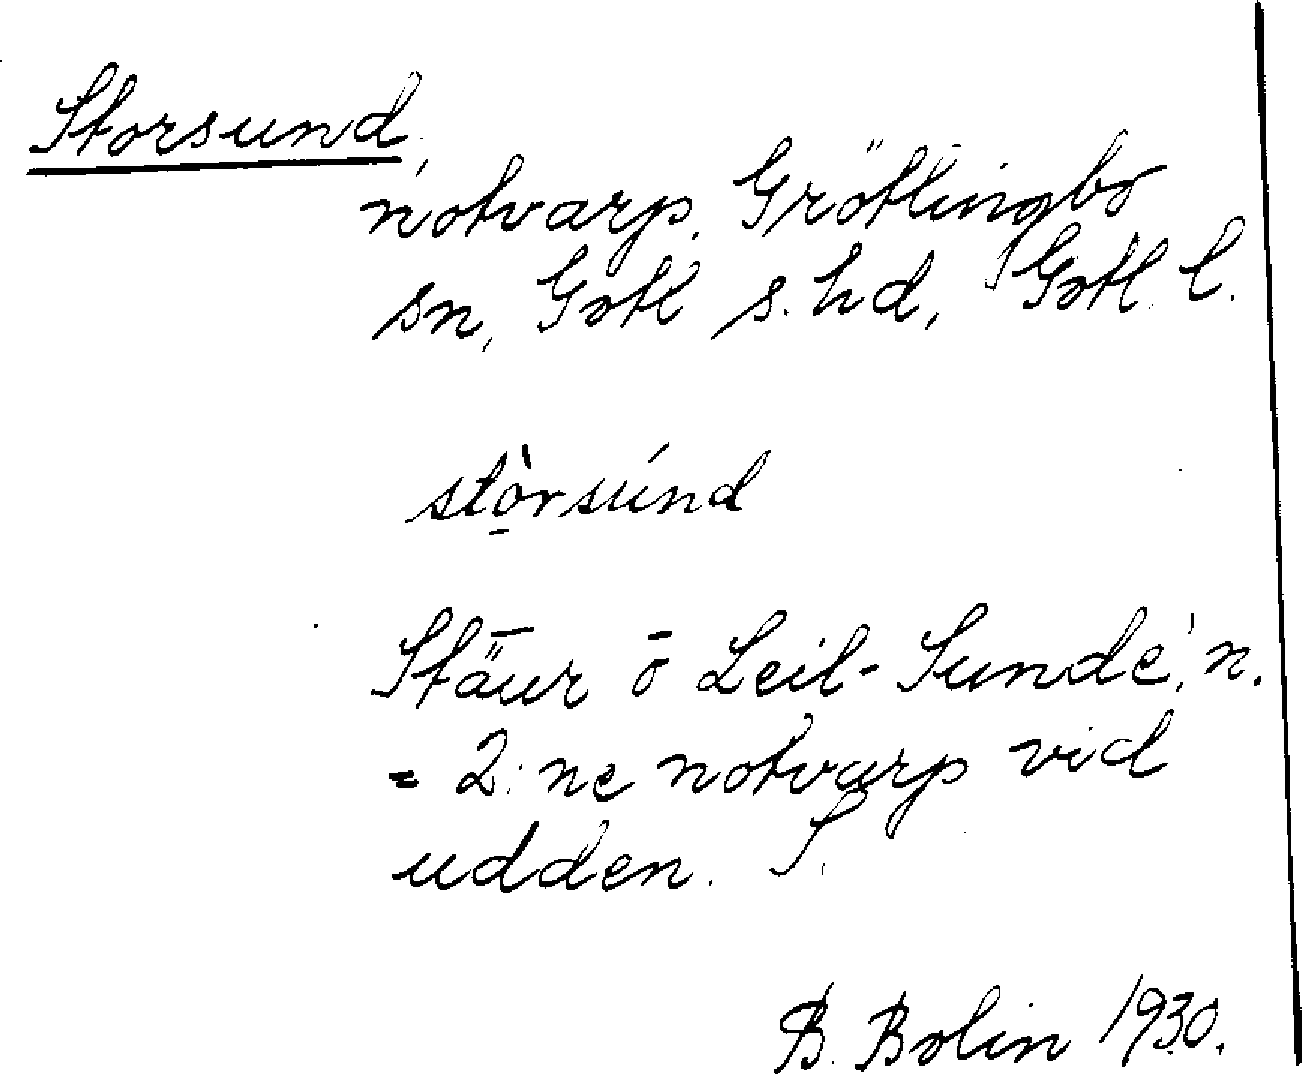 Storsund,
notvarp, Grötlingbo
sn, Gotl s. hd, Gotl. l.
stò̠rsúnd
Stäur ō Leil-Sunde, n.
= 2:ne notvarp vid
udden. S.
B. Bolin 1930.